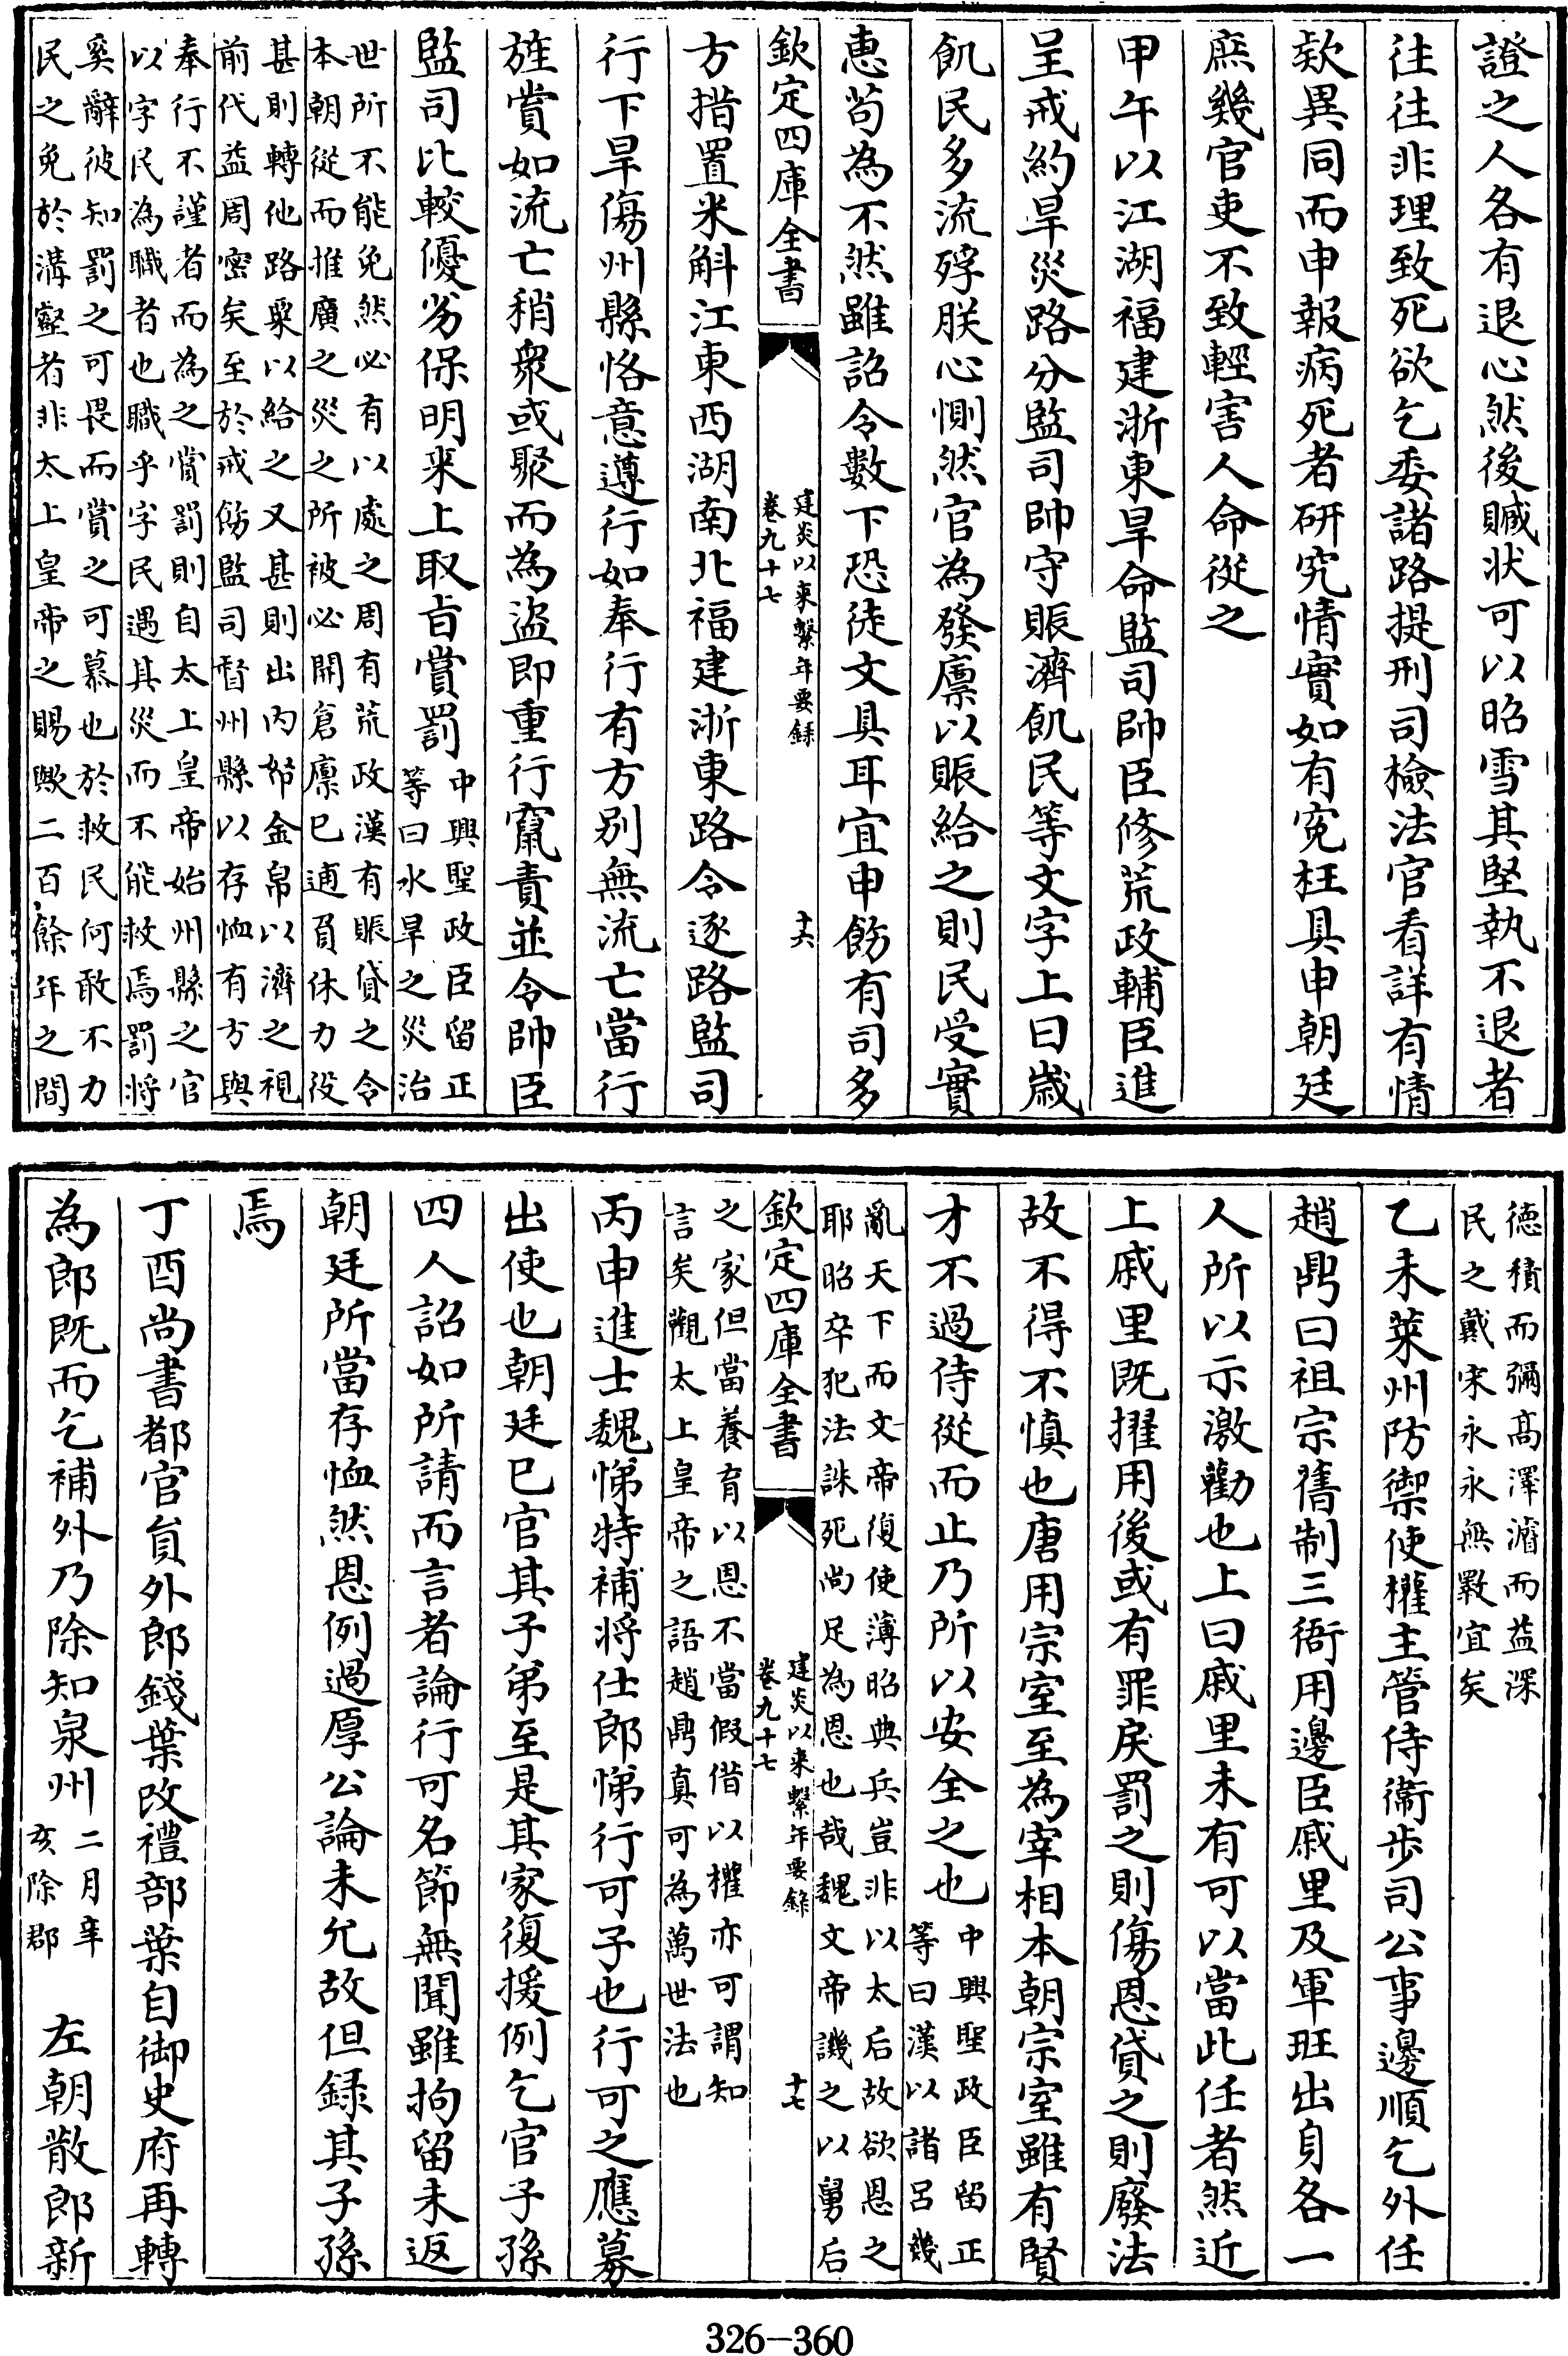 證之人各有退心然後贓狀可以昭雪其堅執不退者
往往非理致死欲乞委諸路提刑司檢法官看詳有情
欵異同而申報病死者研究情實如有寃枉具申朝廷
庶幾官吏不致輕害人命從之
甲午以江湖福建浙東旱命監司帥臣修荒政輔臣進
呈戒約旱災路分監司帥守賑濟飢民等文字上曰歳
飢民多流殍朕心惻然官為發廪以賑給之則民受實
惠茍為不然雖詔令數下恐徒文具耳宜申飭有司多
欽定四庫全書
建炎以來繫年要録
卷九十七
十六
方措置米斛江東西湖南北福建浙東路令逐路監司
行下旱傷州縣恪意遵行如奉行有方别無流亡當行
旌賞如流亡稍衆或聚而為盗即重行竄責並令帥臣
監司比較優劣保明来上取旨賞罰
中興聖政臣留正
等曰水旱之災治
世所不能免然必有以處之周有荒政漢有賑貸之令
本朝從而推廣之災之所被必開倉廪已逋負休力役
甚則轉他路粟以給之又甚則出内帑金帛以濟之視
前代益周密矣至於戒飭監司督州縣以存恤有方與
奉行不謹者而為之賞罰則自太上皇帝始州縣之官
以字民為職者也職乎字民遇其災而不能救焉罰將
奚辭彼知罰之可畏而賞之可慕也於救民何敢不力
民之免於溝壑者非太上皇帝之賜歟二百餘年之間
德積而彌髙澤濬而益深
民之戴宋永永無斁宜矣
乙未萊州防禦使權主管侍衞步司公事邊順乞外任
趙鼎曰祖宗舊制三衙用邊臣戚里及軍班出身各一
人所以示激勸也上曰戚里未有可以當此任者然近
上戚里既擢用後或有罪戾罰之則傷恩貸之則廢法
故不得不慎也唐用宗室至為宰相本朝宗室雖有賢
才不過侍從而止乃所以安全之也
中興聖政臣留正
等曰漢以諸呂幾
亂天下而文帝復使薄昭典兵豈非以太后故欲恩之
耶昭卒犯法誅死尚足為恩也哉魏文帝譏之以舅后
欽定四庫全書
建炎以來繫年要錄
卷九十七
十七
之家但當養育以恩不當假借以權亦可謂知
言矣觀太上皇帝之語趙鼎真可為萬世法也
丙申進士魏悌特補將仕郎悌行可子也行可之應募
出使也朝廷巳官其子弟至是其家復援例乞官子孫
四人詔如所請而言者論行可名節無聞雖拘留未返
朝廷所當存恤然恩例過厚公論未允故但録其子孫
焉
丁酉尚書都官員外郎錢葉改禮部葉自御史府再轉
為郎既而乞補外乃除知泉州
二月辛
亥除郡
左朝散郎新
326-360